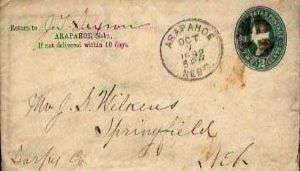 Return to
ARAPAHOE, Nebr.,
If not delivered within 10 days.
ARAPAHOE
OCT
1892
NEBR.
Mr J. S. Wilkens
Springfield
Sarpy Co. Neb